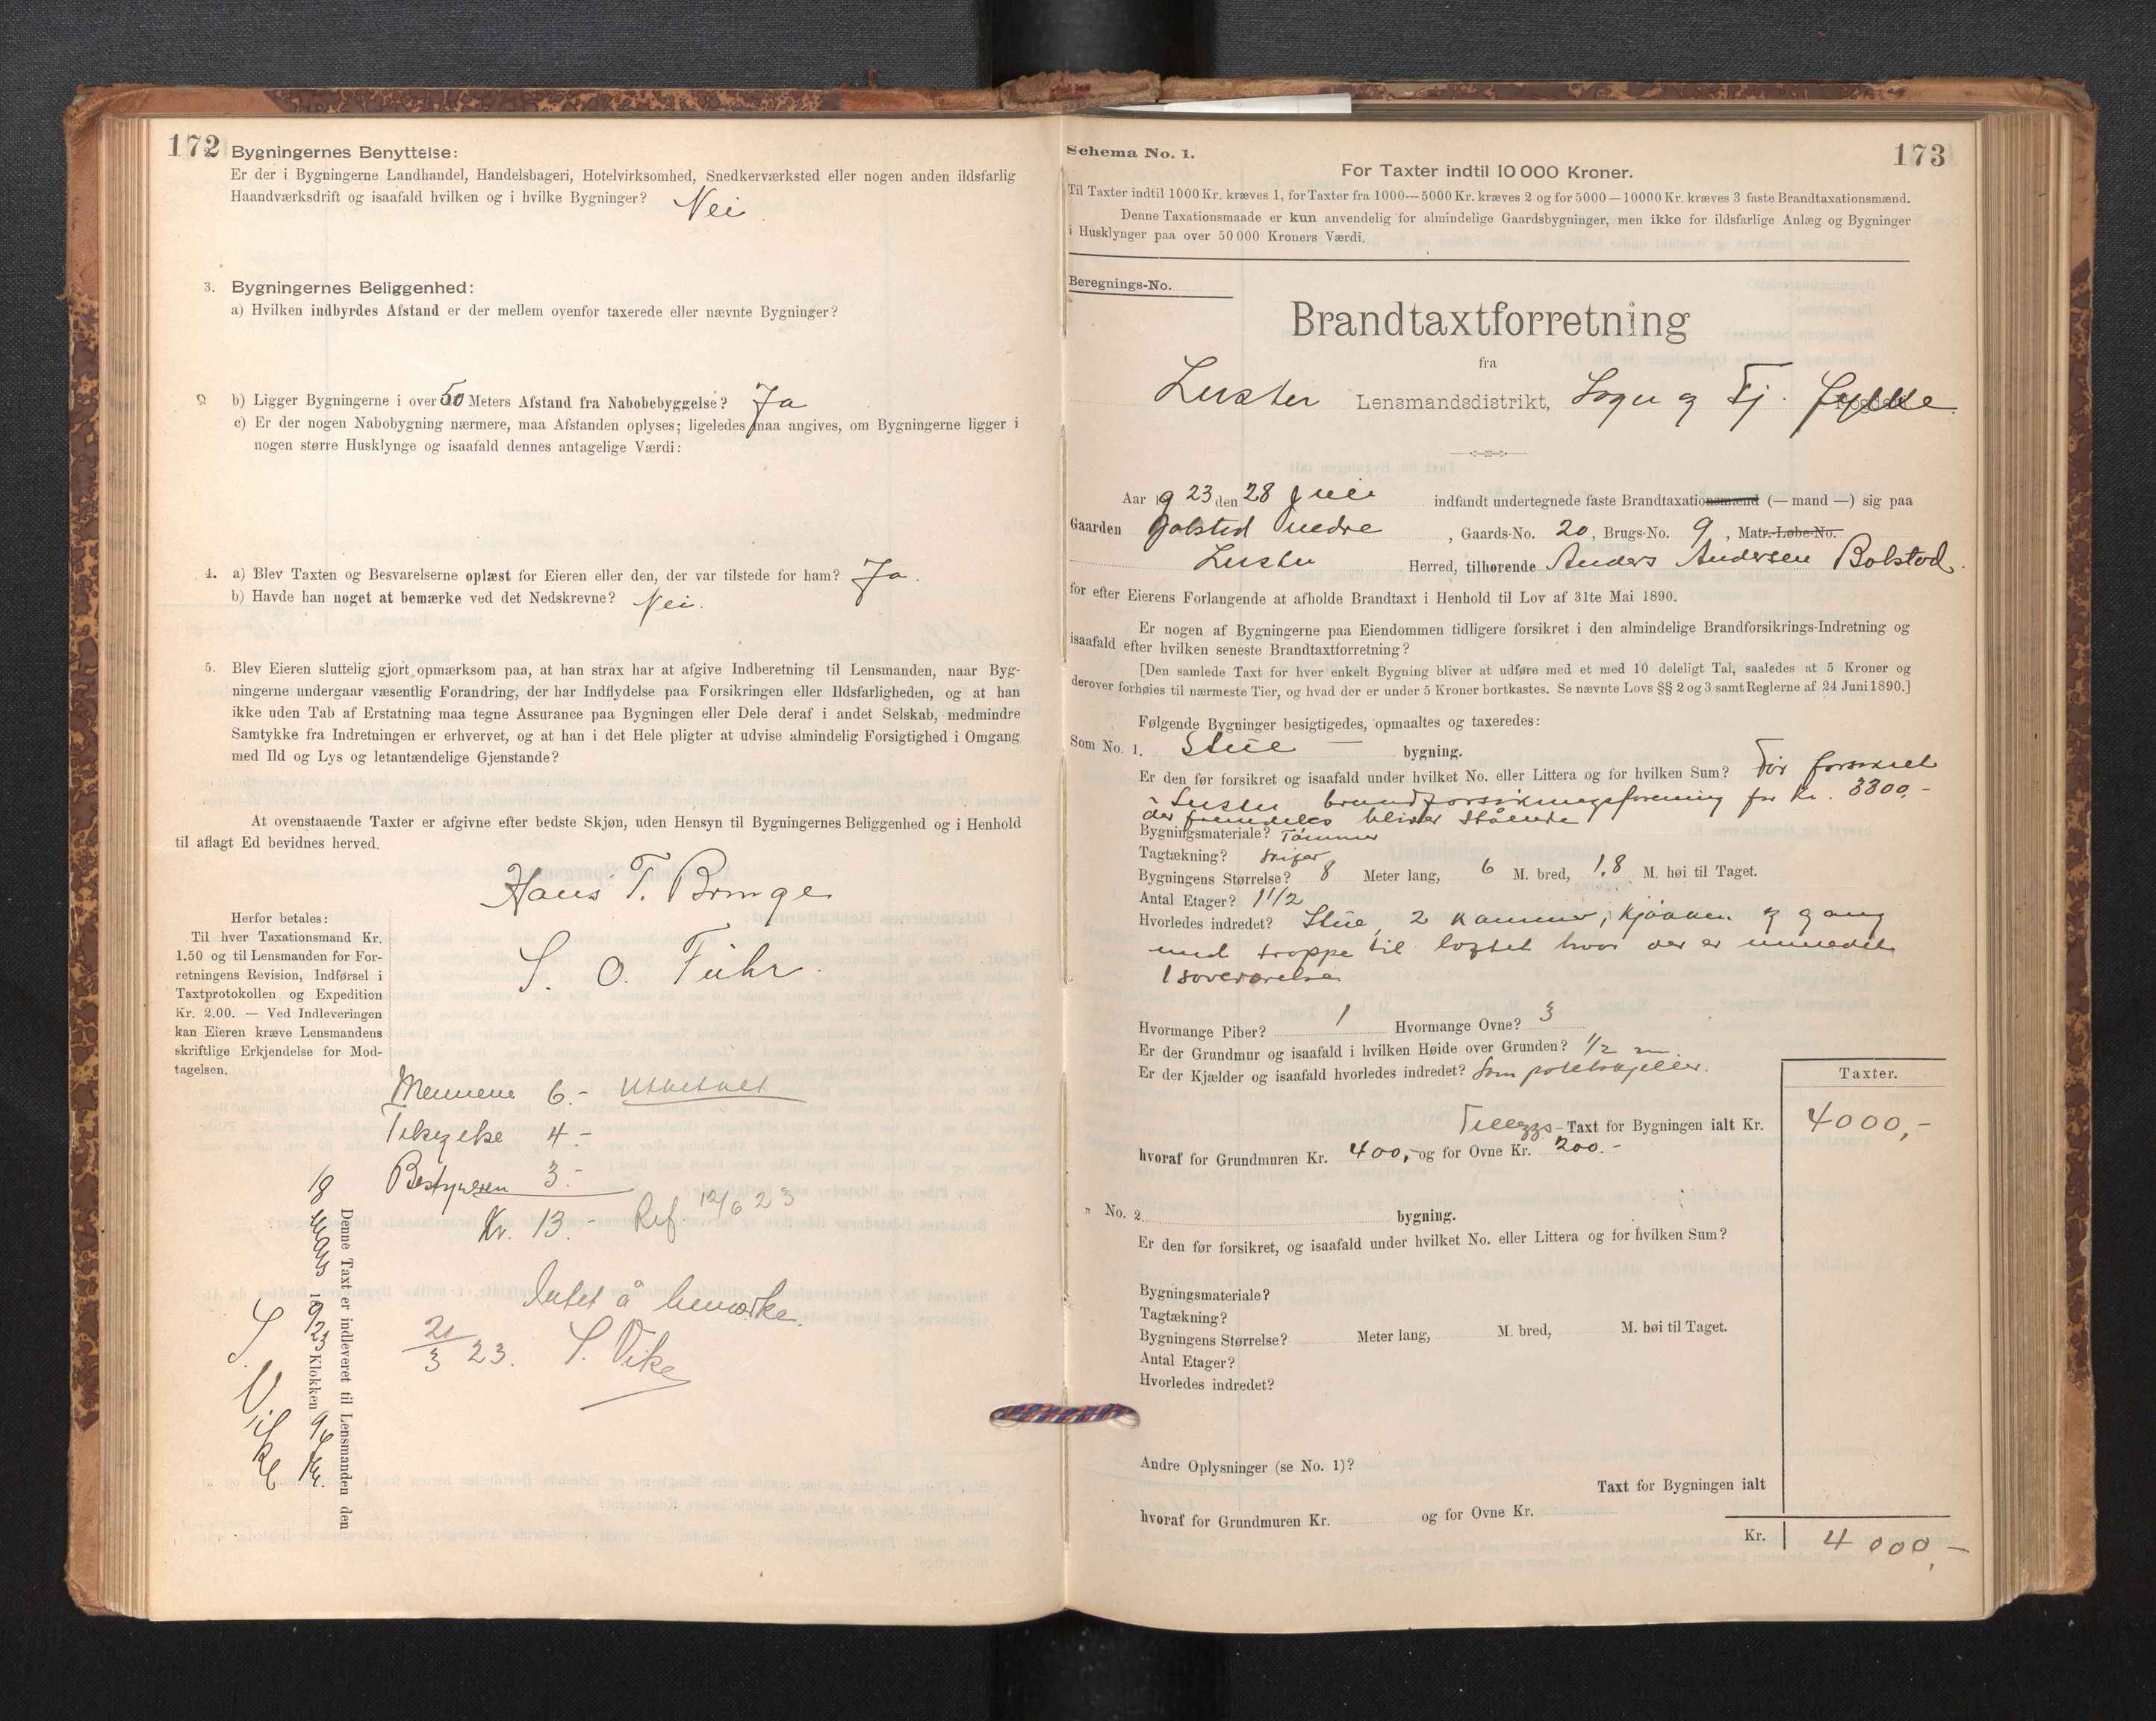 172
Bygningernes Benyttelse:
Er der i Bygningerne Landhandel, Handelsbageri, Hotelvirksomhed, Snedkerværksted eller nogen anden ildsfarlig
Haandværksdrift og isaafald hvilken og i hvilke Bygninger? Nei.
3. Bygningernes Beliggenhed:
a) Hvilken indbyrdes Afstand er der mellem ovenfor taxerede eller nævnte Bygninger?
b) Ligger Bygningerne i over 50 Meters Afstand fra Nabobebyggelse? Ja
c) Er der nogen Nabobygning nærmere, maa Afstanden oplyses; ligeledes maa angives, om Bygningerne ligger i
nogen større Husklynge og isaafald dennes antagelige Værdi:
4. a) Blev Taxten og Besvarelserne oplæst for Eieren eller den, der var tilstede for ham? Ja.
b) Havde han noget at bemærke ved det Nedskrevne? Nei.
5. Blev Eieren sluttelig gjort opmærksom paa, at han strax har at afgive Indberetning til Lensmanden, naar Byg-
ningerne undergaar væsentlig Forandring, der har Indflydelse paa Forsikringen eller Ildsfarligheden, og at han
ikke uden Tab af Erstatning maa tegne Assurance paa Bygningen eller Dele deraf i andet Selskab, medmindre
Samtykke fra Indretningen er erhvervet, og at han i det Hele pligter at udvise almindelig Forsigtighed i Omgang
med Ild og Lys og letantændelige Gjenstande?
At ovenstaaende Taxter er afgivne efter bedste Skjøn, uden Hensyn til Bygningernes Beliggenhed og i Henhold
til aflagt Ed bevidnes herved.
Hans T. Bringe
S. O. Fuhr.
Herfor betales:
Til hver Taxationsmand Kr.
1.50 og til Lensmanden for For-
retningens Revision, Indførsel i
Taxtprotokollen og Expedition
Kr. 2.00. — Ved Indleveringen
kan Eieren kræve Lensmandens
skriftlige Erkjendelse for Mod-
tagelsen.
Mennene 6.- utbetalt
4 -
Bestyreren 3.-
Kr. 13.- Ref 12/6 23
Intet å bemærke.
21/3 23. S. Vike
Denne Taxt er indleveret til Lensmanden den
18 mars 1923 Klokken
S. Vike
Schema No. 1.
173
For Taxter indtil 10 000 Kroner.
Til Taxter indtil 1000 Kr. kræves 1, for Taxter fra 1000—5000 Kr. kræves 2 og for 5000—10000 Kr. kræves 3 faste Brandtaxationsmænd.
Denne Taxationsmaade er kun anvendelig for almindelige Gaardsbygninger, men ikke for ildsfarlige Anlæg og Bygninger
i Husklynger paa over 50 000 Kroners Værdi.
Beregnings-No.
Brandtaxtforretning
fra
Luster Lensmandsdistrikt, Sogn og Fj. fylke
Aar 1923 den 28 indfandt undertegnede faste Brandtaxationsmænd (— mand —) sig paa
Gaarden Bolstad nedre, Gaards-No. 20, Brugs-No. 9, Matr.-Løbe-No.
Luster Herred, tilhørende Anders Andersen Bolstad.
for efter Eierens Forlangende at afholde Brandtaxt i Henhold til Lov af 31te Mai 1890.
Er nogen af Bygningerne paa Eiendommen tidligere forsikret i den almindelige Brandforsikrings-Indretning og
isaafald efter hvilken seneste Brandtaxtforretning?
[Den samlede Taxt for hver enkelt Bygning bliver at udføre med et med 10 deleligt Tal, saaledes at 5 Kroner og
derover forhøies til nærmeste Tier, og hvad der er under 5 Kroner bortkastes. Se nævnte Lovs §§ 2 og 3 samt Reglerne af 24 Juni 1890.]
Følgende Bygninger besigtigedes, opmaaltes og taxeredes:
Som No. 1. Stue — bygning.
Er den før forsikret og isaafald under hvilket No. eller Littera og for hvilken Sum? Før forsikret
i Luster brandforsikringsforening for kr. 3300,-
der fremdeles bliver stående
Bygningsmateriale? Tømmer
Tagtækning? Skifer
Bygningens Størrelse? 8 Meter lang, 6 M. bred, 1,8 M. høi til Taget.
Antal Etager? 1 1/2
Hvorledes indredet? Stue, 2 kammer, kjøkken og gang
med trappe til loftet hvor der er innredet
1 soveværelse
Hvormange Piber? 1 Hvormange Ovne? 3
Er der Grundmur og isaafald i hvilken Høide over Grunden? 1/2 m.
Er der Kjælder og isaafald hvorledes indredet? Som potetkjeller.
Taxter.
Tillegs-Taxt for Bygningen ialt Kr. 4000,-
hvoraf for Grundmuren Kr. 400,- og for Ovne Kr. 200.-
" No. 2. bygning.
Er den før forsikret, og isaafald under hvilket No. eller Littera og for hvilken Sum?
Bygningsmateriale?
Tagtækning?
Bygningens Størrelse? Meter lang, M. bred, M. høi til Taget.
Antal Etager?
Hvorledes indredet?
Andre Oplysninger (se No. 1)?
Taxt for Bygningen ialt
hvoraf for Grundmuren Kr. og for Ovne Kr.
Kr. 4000,-